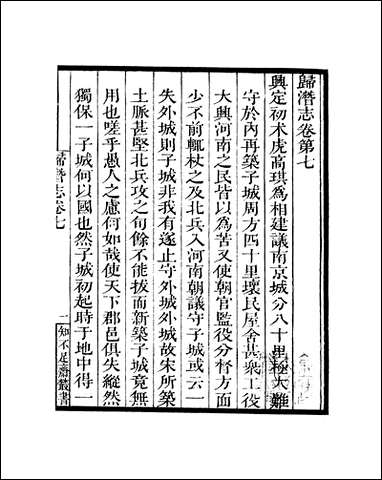 歸潛志卷第七
興定初朮虎高琪為相建議南京城方八十里極大難
守於內再築子城周方四十里壞民屋舍甚衆工役
大興河南之民皆以為苦又使朝官監役分督方面
少不前輒杖之及北兵入河南朝議守子城或云一
失外城則子城非我有遂止守外城外城故宋所築
土脈甚堅北兵攻之旬餘不能拔而新築子城竟無
用也嗟乎愚人之慮何如哉使天下郡邑俱失縱然
獨保一子城何以國也然子城初起時于地中得一
歸潛志卷七
一
知不足齋叢書